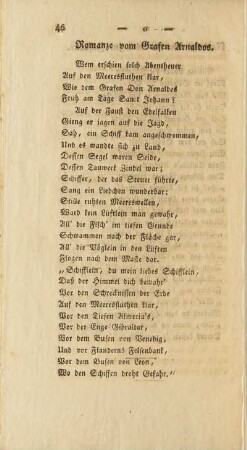 46 — o —
Romanze vom Grafen Arnaldos.
Wem erschien solch Abentheuer
Auf den Meeresfluthen klar,
Wie dem Grafen Don Arnaldes
Früh am Tage Sanct Johann?
Auf der Faust den Edelfalken
Gieng er jagen auf die Jagd,
Sah, ein Schiff kam angeschwommen,
Und es wandte sich zu Land,
Dessen Segel waren Seide,
Dessen Tauwerk Zindel war;
Schiffer, der das Steuer führte,
Sang ein Liedchen wunderbar:
Stille ruhten Meereswellen,
Ward kein Lüftlein man gewahr,
All' die Fisch' im tiefen Grunde
Schwammen nach der Fläche gar,
All' die Vöglein in den Lüften
Flogen nach dem Maste dar.
„Schifflein, du mein liebes Schifflein,
Daß der Himmel dich bewahr'
Vor den Schrecknissen der Erde
Auf den Meeresfluthen klar,
Vor den Tiefen Almeria's,
Vor der Enge Gibraltar,
Vor dem Busen von Venedig,
Und vor Flanderns Felsenbank,
Vor dem Busen von Leon,
Wo den Schiffen droht Gefahr."